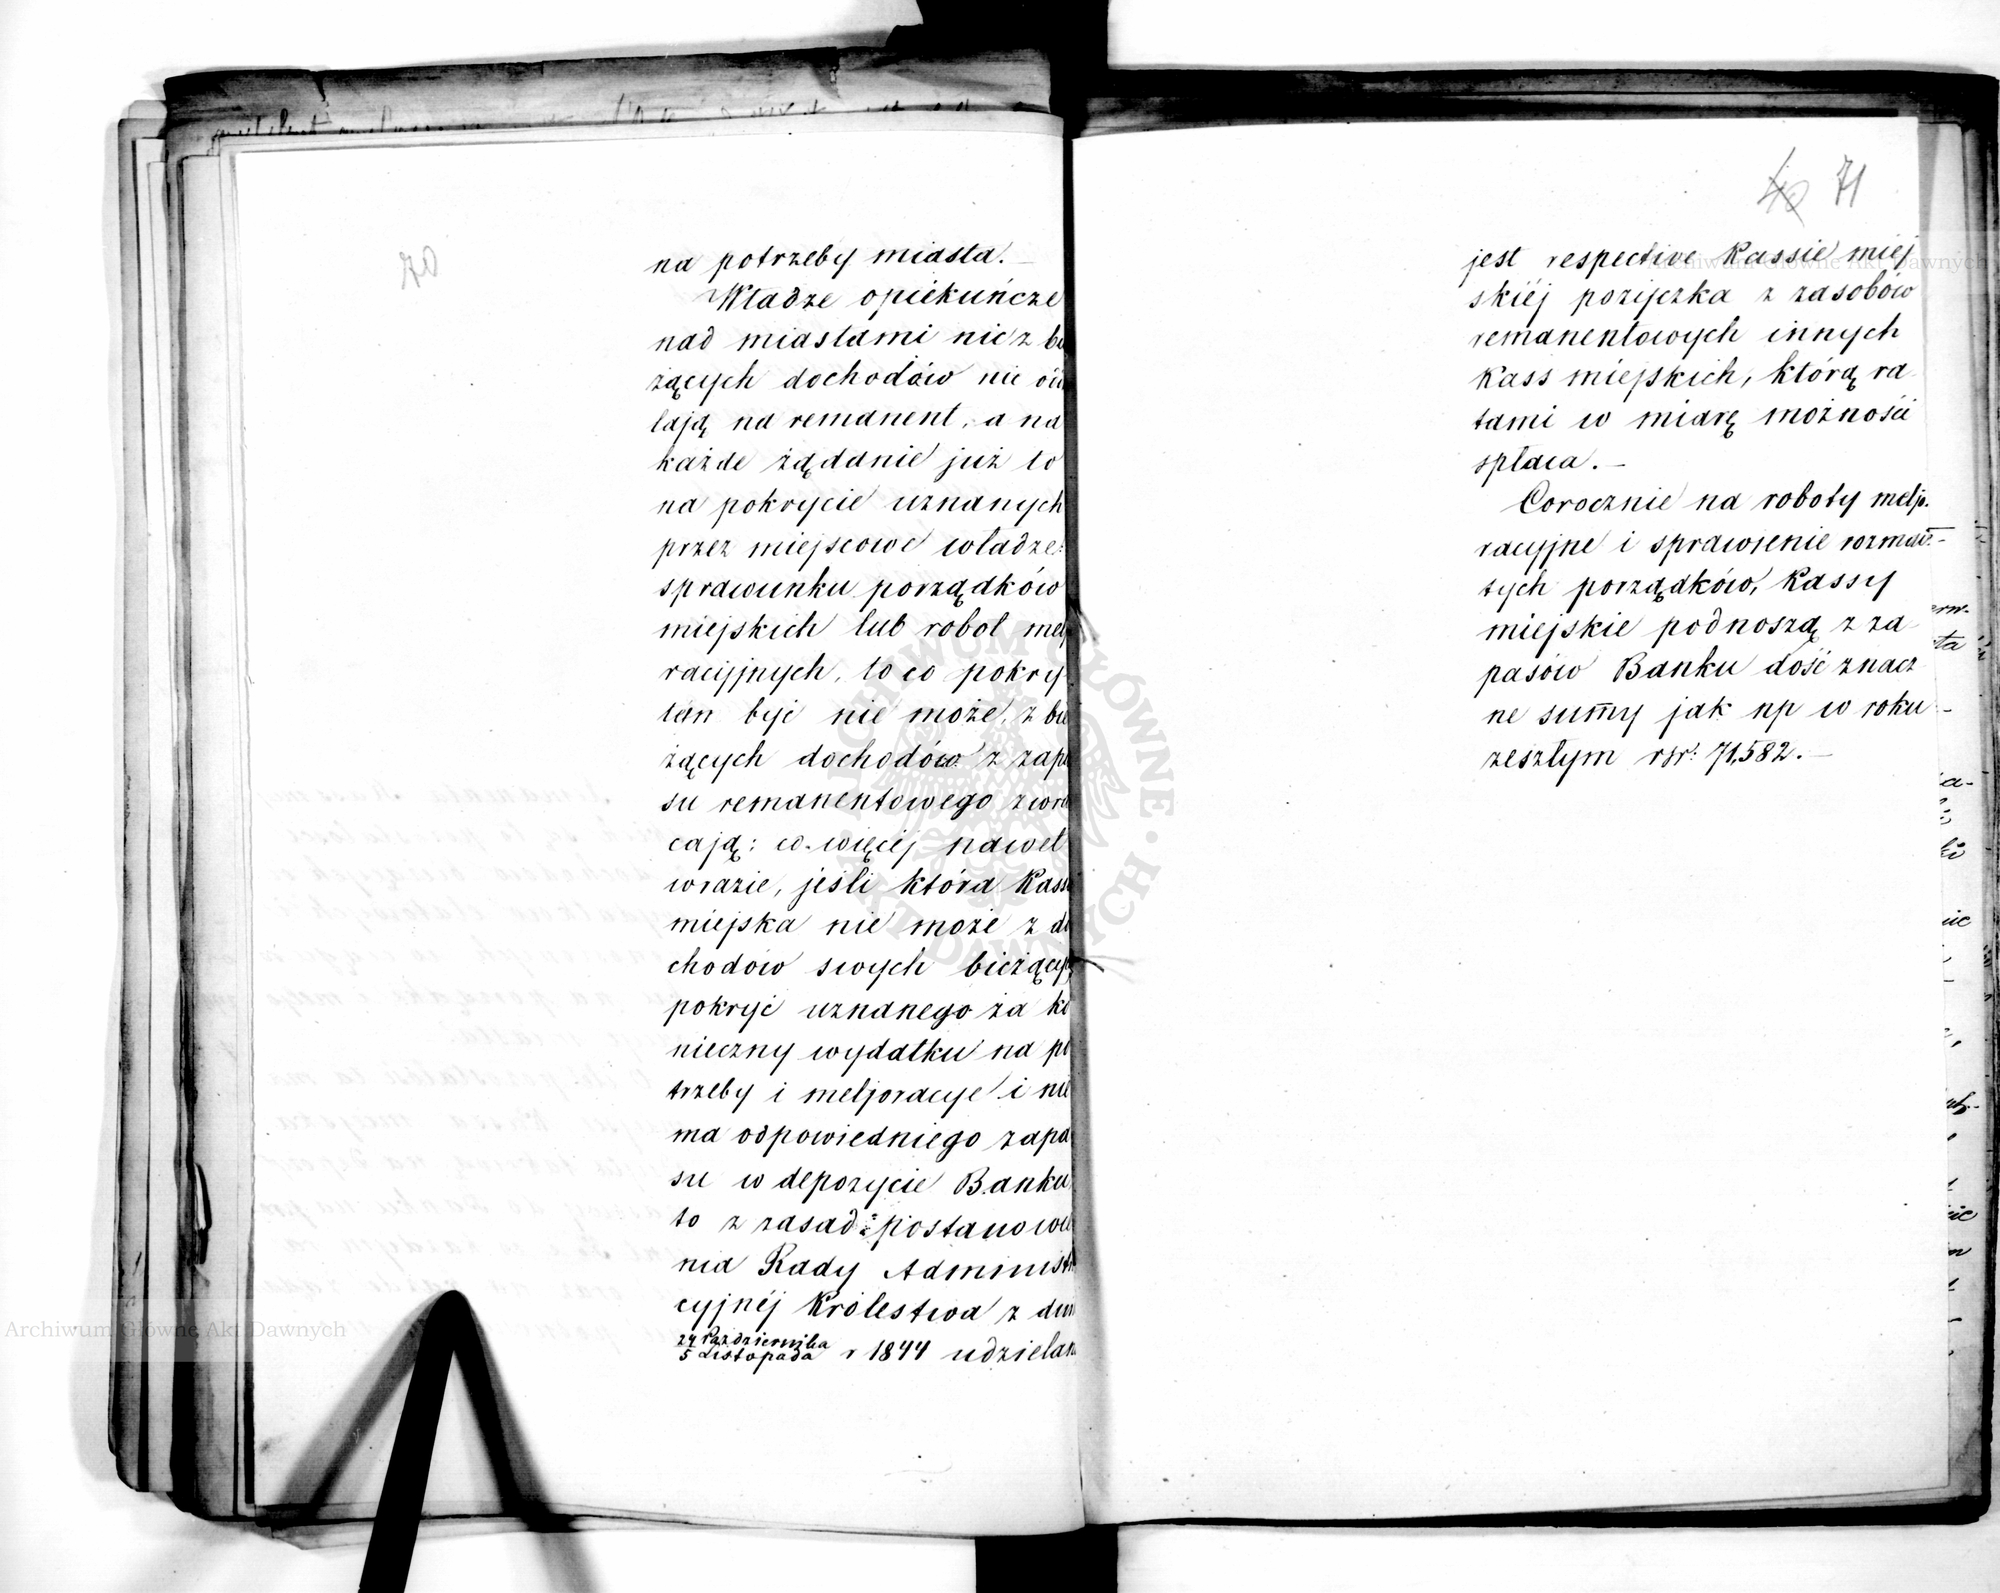 70
na potrzeby miasta. —
Władze opiekuńcze
nad miastami nic z bi
żących dochodów nie od
lają na remanent, a na
każde żądanie już to
na pokrycie uznanych
przez miejscowe władze
sprawunku porządków
miejskich lub robot melj
racyjnych, to co pokry
tem być nie może, z bie
żących dochodów z zapa
su remanentowego zwra
cają; co więcej nawet
wrazie, jeśli która Kassa
miejska nie może z do
chodów swych bieżących
pokryć uznanego za ko
nieczny wydatku na po
trzeby i meljoracye i nie
ma odpowiedniego zapa
su w depozycie Banku
to z zasad postanowie
nia Rady Administra
cyjnéj Królestwa z dnia
24 Października
5 Listopada r 1844 udzielana
71
jest respective Kassie miej
skiéj pożyczka z zasobów
remanentowych innych
Kass miejskich, którą ra
tami w miarę możności
spłaca. —
Corocznie na roboty meljo.
racyjne i sprawienie rozmai-
tych porządków, Kassy
miejskie podnoszą z za
pasów Banku dość znacz
ne summy jak np w roku
zeszłym rsr: 71,582. —
Archiwum Główne Akt Dawnych
Archiwum Główne Akt Dawnych
ARCHIWUM GŁÓWNE
AKT DAWNYCH